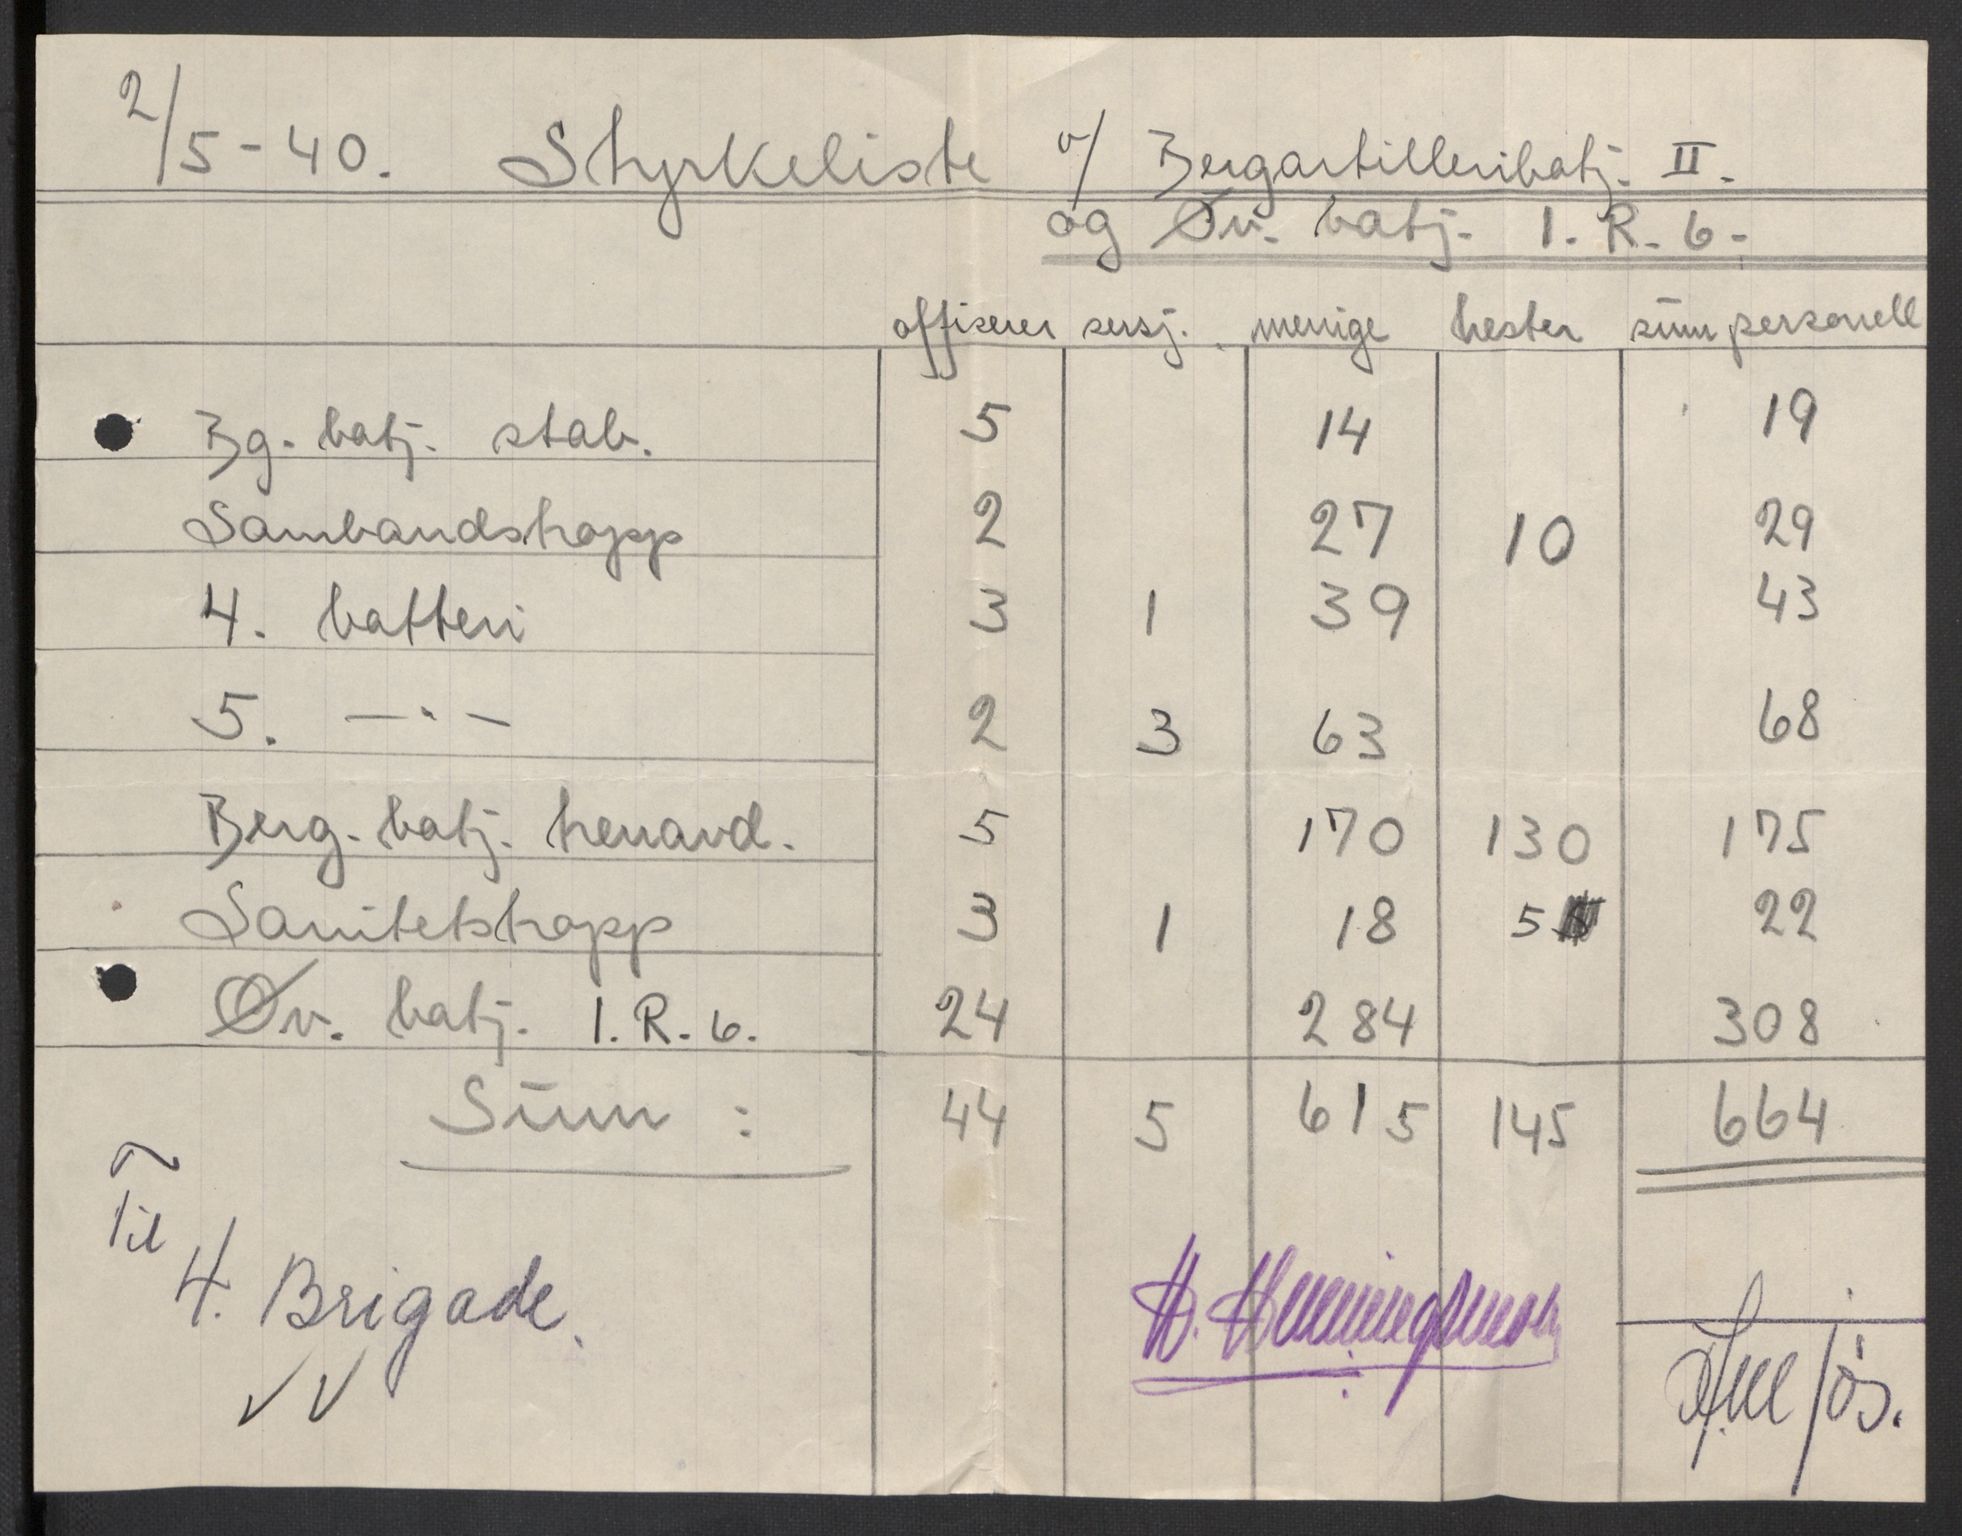 2/5-40. Styrkeliste v/ Bergartilleribatj. II.
og Øv. batj. I. R. 6.
offiserer sersj. menige hester sum personell
Bg. batj. stab. 5 14 19
Sambandstropp 2 27 10 29
4. batteri 3 1 39 43
5. —·— 2 3 63 68
Berg. batj. trenavd. 5 170 130 175
Sanitetstropp 3 1 18 5 22
Øv. batj. I. R. 6. 24 284 308
Sum : 44 5 615 145 664
Til
4. Brigade.